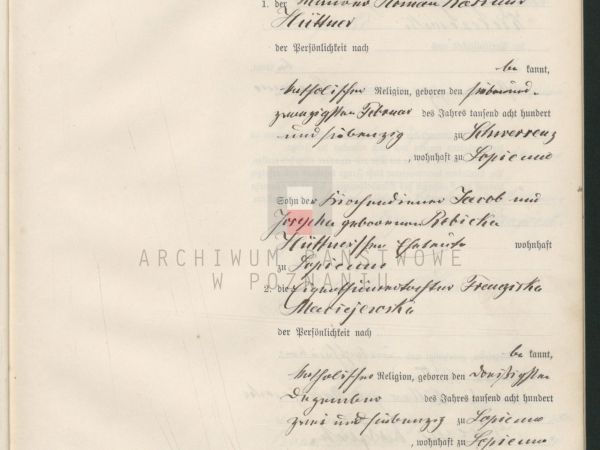 1. der Maurer Roman
Hüttner
der Persönlichkeit nach
be kannt,
katholischer Religion, geboren den siebenund-
zwanzigsten Februar des Jahres tausend acht hundert
und siebenzig zu Schwersenz
, wohnhaft zu Lopienno
Sohn der Kirchendiener Jacob und
Josepha geborenen
Hüttnerschen Eheleute wohnhaft
ARCHIWUM PAŃSTWOWE
W POZNANIU
zu Lopienno
2. die Franziska
Maciejewska
der Persönlichkeit nach
be kannt,
katholischer Religion, geboren den dreißigsten
Dezember des Jahres tausend acht hundert
zwei und siebenzig zu Lopienno
, wohnhaft zu Lopienno